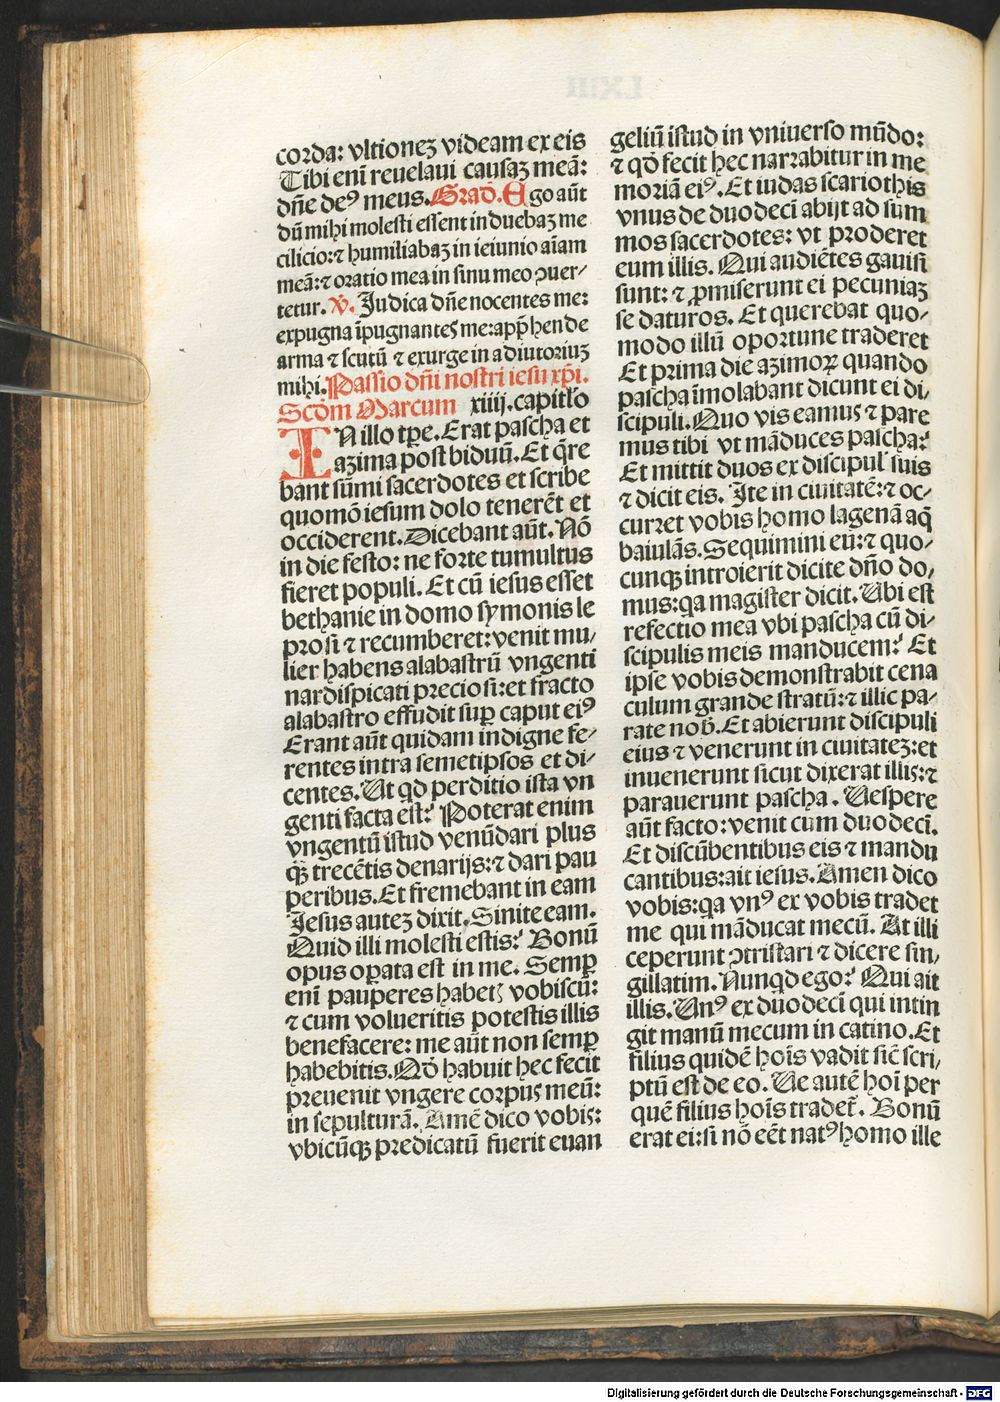 corda: vltionez videam ex eis
Tibi enī reuelaui causaz meā:
dn̄e deꝰ meus. Grad̄. Ego aūt
dū mihi molesti essent induebaz me
cilicio: ⁊ humiliabaz in ieiunio aīam
meā: ⁊ oratio mea in sinu meo ꝯuer/
tetur. v̄. Judica dn̄e nocentes me:
expugna īpugnantes me: app̄hende
arma ⁊ scutū ⁊ exurge in adiutoriuz
mihi. Passio dn̄i nostri iesu xp̄i.
Scd̄m Marcum xiiij. capitl̄o
IN illo tꝑe. Erat pascha et
azima post biduū. Et q̄re
bant sūmi sacerdotes et scribe
quomō iesum dolo tenerēt et
occiderent. Dicebant aūt. Nō
in die festo: ne forte tumultus
fieret populi. Et cū iesus esset
bethanie in domo symonis le
prosi ⁊ recumberet: venit mu/
lier habens alabastrū vngenti
nardi spicati preciosi: et fracto
alabastro effudit suꝑ caput eiꝰ
Erant aūt quidam indigne fe/
rentes intra semetipsos et di/
centes. Ut qd perditio ista vn
genti facta est? Poterat enim
vngentū istud venūdari plus
q̄ꝫ trecētis denarijs: ⁊ dari pau
peribus. Et fremebant in eam
Jesus autez dixit. Sinite eam.
Quid illi molesti estis? Bonū
opus oꝑata est in me. Semꝑ
enī pauperes habetꝭ vobiscū:
⁊ cum volueritis potestis illis
benefacere: me aūt non semꝑ
habebitis. Qd̄ habuit hec fecit
preuenit vngere corpus meū:
in sepulturā. Amē dico vobis:
vbicūqꝫ predicatū fuerit euan
geliū istud in vniuerso mūdo:
⁊ qd̄ fecit hec narrabitur in me
moriā eiꝰ. Et iudas scariothis
vnus de duodecī abijt ad sum
mos sacerdotes: vt proderet
eum illis. Qui audiētes gauisi
sunt: ⁊ ꝓmiserunt ei pecuniaz
se daturos. Et querebat quo/
modo illū oportune traderet
Et prima die azimoꝝ quando
pascha īmolabant dicunt ei di/
scipuli. Quo vis eamus ⁊ pare
mus tibi vt māduces pascha?
Et mittit duos ex discipul' suis
⁊ dicit eis. Ite in ciuitatē: ⁊ oc/
curret vobis homo lagenā aq̄
baiulās. Sequimini eū: ⁊ quo/
cunqꝫ introierit dicite dn̄o do/
mus: qa magister dicit. Ubi est
refectio mea vbi pascha cū di/
scipulis meis manducem? Et
ipse vobis demonstrabit cena
culum grande stratū: ⁊ illic pa/
rate nob̄. Et abierunt discipuli
eius ⁊ venerunt in ciuitatez: et
inuenerunt sicut dixerat illis: ⁊
parauerunt pascha. Uespere
aūt facto: venit cum duodecī.
Et discūbentibus eis ⁊ mandu
cantibus: ait iesus. Amen dico
vobis: qa vnꝰ ex vobis tradet
me qui māducat mecū. At illi
ceperunt ꝯtristari ⁊ dicere sin/
gillatim. Nunqd ego? Qui ait
illis. Unꝰ ex duodecī qui intin
git manū mecum in catino. Et
filius quidē hoīs vadit siē scri/
ptū est de eo. Ue autē hoī per
quē filius hoīs tradet̄. Bonū
erat ei: si nō eēt natꝰ homo ille
Digitalisierung gefördert durch die Deutsche Forschungsgemeinschaft - DFG